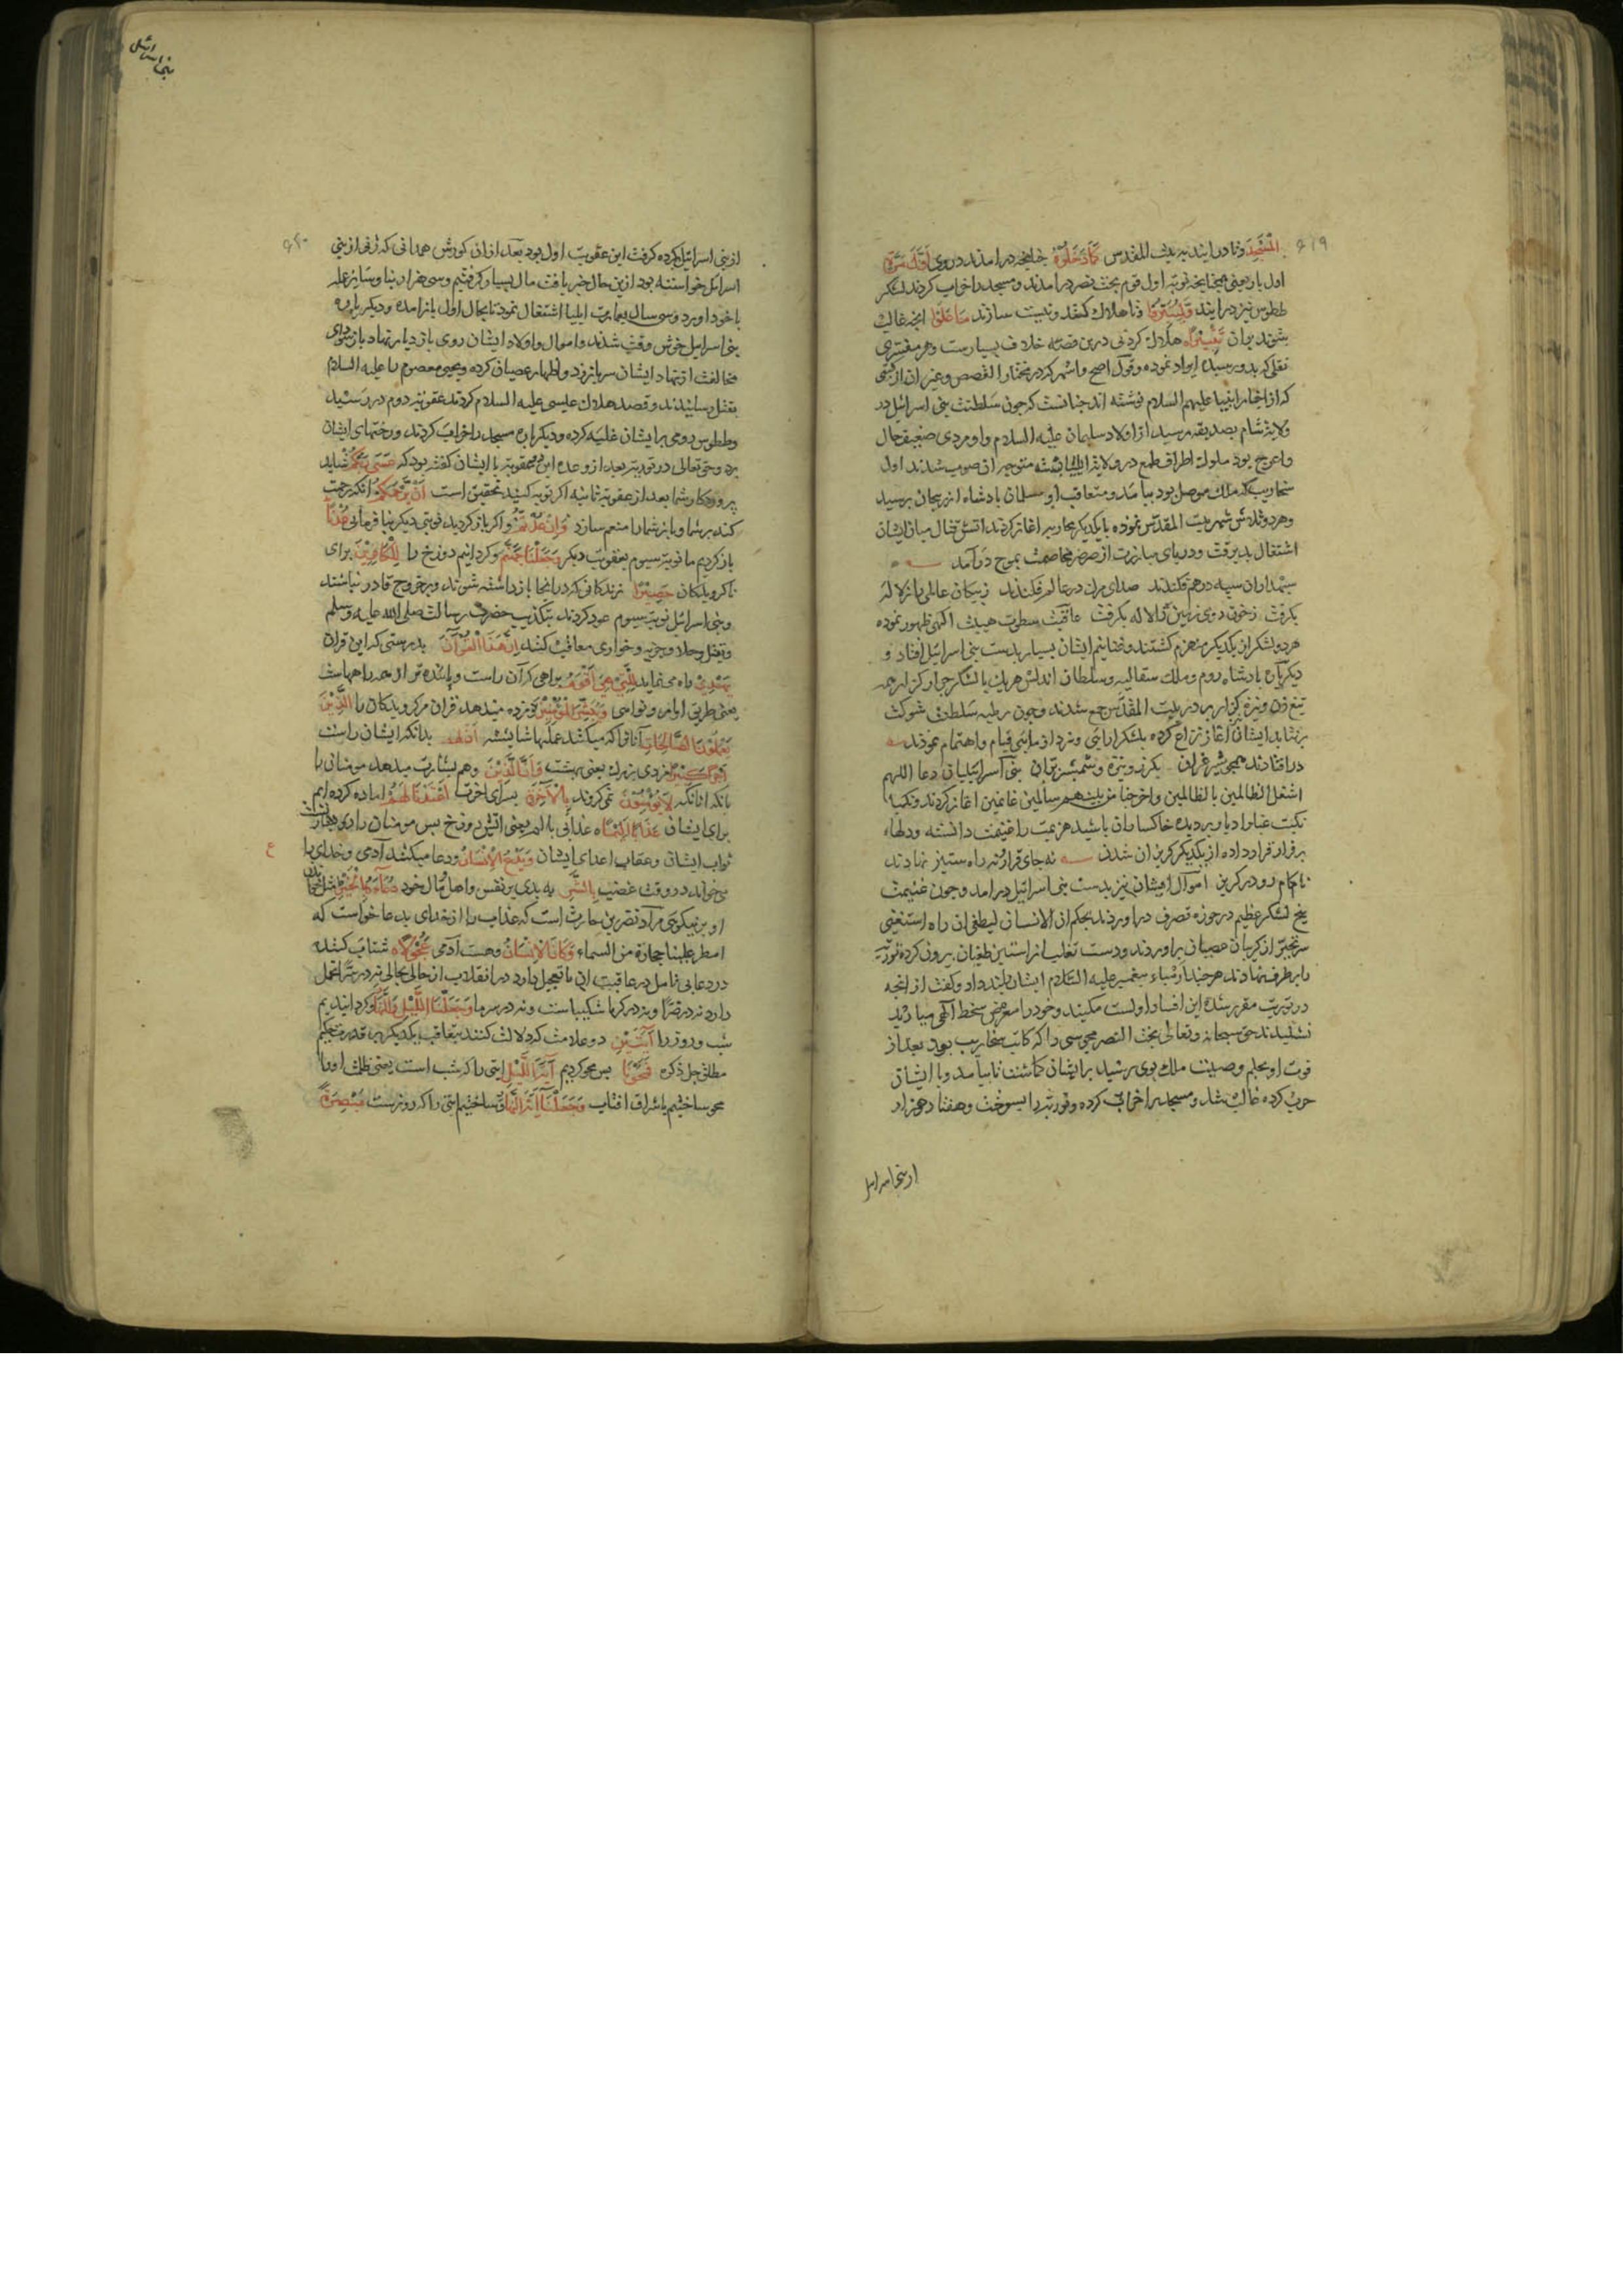 ۶۱۹
الْمَسْجِدَ وتا درایند به بیت المقدس كَمَا دَخَلُوهُ چنانچه درامدند دروی اَوَّلَ مَرَّةٍ
اول بار یعنی همچنانچه نوبت اول قوم بخت نصر درامدند ومسجد را خراب کردند لشکر
ططوس نیز درایند وَلِيُتَبِّرُوا وتا هلاک کنند ونیست سازند مَا عَلَوْا انچه غالب
شوند بران تَتْبِيرًا هلاک کردنی درین قصه خلاف بسیارست وهر مفسری
نقلی که بدو رسیده ایراد نموده وقول اصح واشهر که در مختار القصص وغیر ان از کتبی
که از اخبار انبیا علیهم السلام نوشته اند چنانست که چون سلطنت بنی اسرائیل در
ولایت شام بصدیقه رسید از اولاد سلیمان علیه السلام واو مردی ضعیف حال
واعرج بود ملوک اطراف طمع در ولایت ایلیا بسته متوجه ان صوب شدند اول
سنجاریب که ملک موصل بود بیامد ومتعاقب او سلمان پادشاه اذربیجان برسید
وهر دو تلاش شهر بیت المقدس نموده با یکدیگر محاربه اغاز کردند اتش قتال میان ایشان
اشتعال پذیرفت ودریای مبارزت از صرصر مخاصمت بموج درآمد
سپهداران سپه درهم فکندند صدای مران در عالم فکندند ز پیکان عالمی را ژاله
بگرفت ز خون روی زمین را لاله بگرفت عاقبت سطوت هیبت الهی ظهور نموده
هر دو لشکر از یکدیگر منهزم گشتند وغنایم ایشان بسیار بدست بنی اسرائیل افتاد و
دیگر بار پادشاه روم وملک سقالیه وسلطان اندلس هریک با لشکر جرار کرار همه
تیغ زن ونیزه گزار بر در بیت المقدس جمع شدند وچون
برنتابد ایشان آغاز نزاع کرده بلشکر ارایی ونبرد ازمایی قیام واهتمام نمودند
درافتادند همچو شیر غران بگرز ونیزه وشمشیر بران بنی اسرائیلیان دعا اللهم
اشغل الظالمین بالظالمین واخرجنا من بینهم سالمین غانمین اغاز کردند ونکبا
نکبت غبار ادبار بر دیده خاکساران پاشید هزیمت را غنیمت دانسته ودلها
بر فرار قرار داده از یکدیگر گریزان شدند نه جای قرار ونه راه ستیز نهادند
ناکام رو در گریز اموال ایشان نیز بدست بنی اسرائیل درامد وچون غنیمت
پنج لشکر عظیم در حوزه تصرف دراوردند بحکم ان الانسان لیطغی ان راه استغنی
سر تجبر از گریبان عصیان براوردند ودست تغلب از استین طغیان بیرون کرده توریة
را بر طرف نهادند هر چند ارشیاء پیغمبر علیه السلام ایشان را پند داد وگفت از انچه
در توریت مقرر شده این افساد اولست مکنید وخود را معرض سخط الهی میارید
نشنیدند حق سبحانه وتعالی بخت النصر مجوسی را که کاتب سنجاریب بود وبعد از
فوت او بحکم وصیت ملک بوی رسید بر ایشان گماشت تا بیامد وبا ایشان
حرب کرده غالب شد ومسجد را خراب کرده وتوریة را بسوخت وهفتاد هزار
از بنی اسرائیل
بنی اسرائیل
۶۲۰
از بنی اسرائیل برده گرفت این عقوبت اول بود بعد ازان کورش همدانی که زنی از بنی
اسرائیل خواسته بود ازین حال خبر یافت مال بسیار گرفتیم وسی هزار بنا وسایر عمله
با خود اورد وسی سال بعمارت ایلیا اشتغال نمود تا بحال اول بازامده ودیگر باره
بنی اسرائیل خوش وقت شدند واموال واولاد ایشان روی بازدیاد نهاد باز سودای
مخالفت از نهاد ایشان سر برزد واظهار عصیان کرده ویحیی معصوم را علیه السلام
بقتل رسانیدند وقصد هلاک عیسی علیه السلام کردند عقوبت دوم در رسید
وططوس رومی بر ایشان غلبه کرده ودیگر باره مسجد را خراب کردند ورختهای ایشان
برد وحق تعالی در توریة بعد از وعده این دو عقوبة با ایشان گفته بود که عَسَى رَبُّكُمْ شاید
پروردگار شما بعد از عقوبة ثانیه اگر توبه کنید تحقیق است اَنْ يَرْحَمَكُمْ انکه رحمت
کند بر شما وباز شما را منعم سازد وَاِنْ عُدْتُمْ واگر باز گردید نوبتی دیگر بنافرمانی عُدْنَا
باز گردیم ما نوبت سیوم بعقوبت دیگر وَجَعَلْنَا جَهَنَّمَ وگردانیم دوزخ را لِلْكَافِرِينَ برای
ناگرویدگان حَصِيرًا زندانی که درانجا بازداشته شوند وبر خروج قادر نباشند
وبنی اسرائیل نوبت سیوم عود کردند بتکذیب حضرت رسالت صلی الله علیه وسلم
وبقتل وجلا وجزیه وخواری معاقب گشتند اِنَّ هَذَا الْقُرْآنَ بدرستی که این قران
يَهْدِي راه می نماید لِلَّتِي هِيَ اَقْوَمُ براهی که آن راست وپاینده تر از همه راههاست
یعنی طریق اوامر ونواهی وَيُبَشِّرُ الْمُؤْمِنِينَ ومژده میدهد قران مر گرویدگان را الَّذِينَ
يَعْمَلُونَ الصَّالِحَاتِ آنانرا که میکنند عملها شایسته اَنَّ لَهُمْ بدانکه ایشان راست
اَجْرًا كَبِيرًا مزدی بزرگ یعنی بهشت وَاَنَّ الَّذِينَ وهم بشارت میدهد مومنان را
بانکه انانکه لَا يُؤْمِنُونَ نمی گروند بِالْآخِرَةِ بسرای اخرت اَعْتَدْنَا لَهُمْ اماده کرده ایم
برای ایشان عَذَابًا اَلِيمًا عذابی با الم یعنی اتش دوزخ پس مومنان را دو بشارتست
ثواب ایشان وعقاب اعدای ایشان وَيَدْعُ الْاِنْسَانُ ودعا میکند آدمی وخدای را
می خواند در وقت غضب بِالشَّرِّ به بدی بر نفس واهل ومال خود دُعَاءَهُ بِالْخَيْرِ مانند
او بر نیکویی مراد نضر بن حارث است که عذاب را از خدای بدعا خواست که
امطر علینا حجارة من السماء وَكَانَ الْاِنْسَانُ وهست آدمی عَجُولًا شتاب کننده
در دعا بی تامل در عاقبت ان یا تعجیل دارد در انقلاب از حالی بحالی نه در سرا تحمل
دارد نه در ضرا ونه در گرما شکیباست ونه در سرما وَجَعَلْنَا اللَّيْلَ وَالنَّهَارَ وگردانیدیم
شب وروز را آيَتَيْنِ دو علامت که دلالت کنند بتعاقب یکدیگر بر قدرت حکیم
مطلق جل ذکره فَمَحَوْنَا پس محو کردیم آيَةَ اللَّيْلِ ایتی را که شب است یعنی ظلمت او را
محو ساختیم باشراق افتاب وَجَعَلْنَا آيَةَ النَّهَارِ وساختیم ایتی را که روزست مُبْصِرَةً